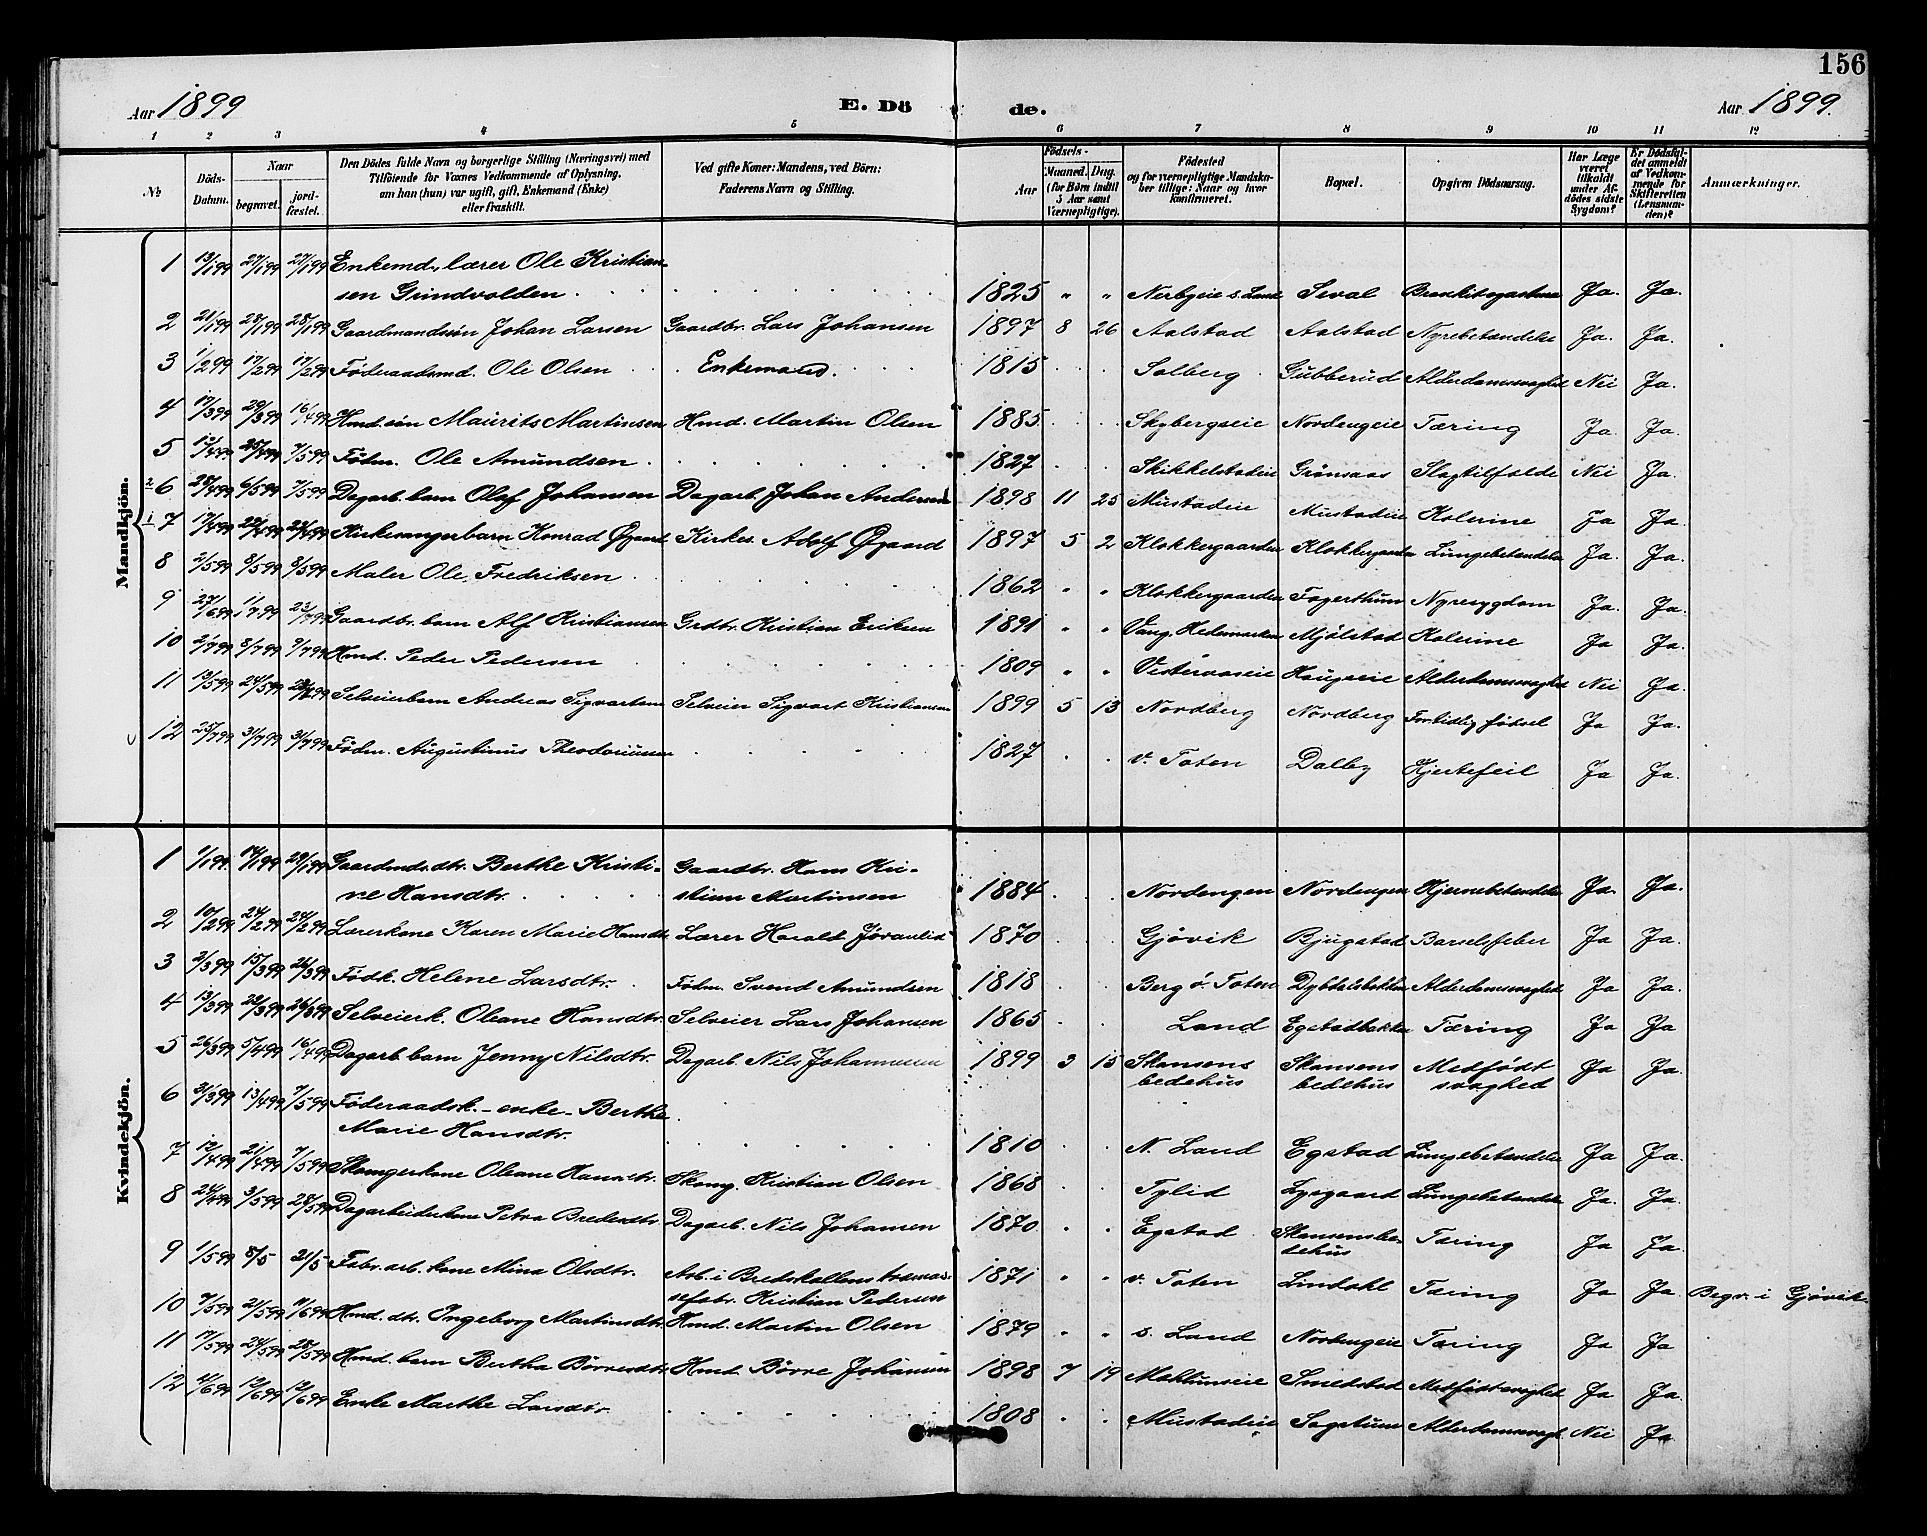 156
Aar 1899
E. Dö
de.
Aar 1899.
1 2 3 4 5 6 7 8 9 10 11 12
№ Döds-Datum. Naar begravet. jordfæstet. Den Dödes fulde Navn og borgerlige Stilling (Næringsvei) med Tilföiende for Voxnes Vedkommende af Oplysning, om han (hun) var ugift, gift, Enkemand (Enke) eller fraskilt. Ved gifte Koner: Mandens, ved Börn: Faderens Navn og Stilling. Födsels- Aar Maaned. Dag. (for Börn indtil 5 Aar samt Værnepligtige). Födested og for værnepligtige Mandskaber tillige: Naar og hvor konfirmeret. Bopæl. Opgiven Dödsaarsag. Har Læge været tilkaldt under Afdödes sidste Sygdom? Er Dödsfaldet anmeldt af Vedkommende for Skifteretten (Lensmanden)? Anmærkninger.
Mandkjön.
1 19/1 99 27/1 99 27/1 99 Enkemd., lærer Ole Kristian-
sen Grindvolden 1825 " " Nerbyeie s. Land Seval Ja. Ja.
2 21/1 99 28/1 99 28/1 99 Gaardmandssön Johan Larsen Gaardbr. Lars Johansen 1897 8 26 Aalstad Aalstad Nyrebetændelse Ja. Ja.
3 1/2 99 17/2 99 17/2 99 Föderaadsmd. Ole Olsen Enkemand. 1815 Solberg Gubberud Alderdomssvaghed Nei Ja.
4 17/3 99 29/3 99 16/4 99 Hmd. sön Maurits Martinsen Hmd. Martin Olsen 1885 Skybergseie Nordengeie Tæring Ja. Ja.
5 25/4 99 7/5 99 Födm. Ole Amundsen 1827 Skikkelstadeie Grönsaas Slagtilfælde Nei Ja.
2 6 28/4 99 6/5 99 7/5 99 Dagarb. barn Olaf Johansen Dagarb. Johan Andersen 1898 11 25 Mustadeie Mustadeie Kolerine Ja Ja.
1 7 17/4 99 Kirkesangerbarn Konrad Øgaard Kirkes. Adolf Øgaard 1897 5 2 Klokkergaarden Klokkergaarden Lungebetændelse Ja. Ja.
8 2/5 99 9/5 99 9/5 99 Maler Ole Fredriksen 1862 " " Klokkergaarden Fagerthun Nyresygdom Ja. Ja.
9 27/6 99 1/7 99 23/7 99 Gaardbr. barn Alf Kristiansen Grdbr. Kristian Eriksen 1891 " " Vang, Hedemarken Mjölstad Kolerine Ja Ja.
10 2/7 99 8/7 99 9/7 99 Hmd. Peder Pedersen 1809 " " Vesteraaseie Haugseie Alderdomssvaghed Nei Ja.
11 19/5 99 24/5 99 Selveierbarn Andreas Sigvartsen Selveier Sigvart Kristiansen 1899 5 13 Nordberg Nordberg For tidlig födsel Ja Ja.
12 25/7 99 31/7 99 31/7 99 Födm. Augustinus Theodoriussen 1827 v. Toten Dalby Hjertefeil Ja Ja.
Kvindekjön.
1 1/1 99 14/1 99 29/1 99 Gaardmds. dtr. Berthe Kristi- Gaardbr. Hans Kri-
ne Hansdtr. stian Martinsen 1884 Nordengen Nordengen Hjernebetændelse Ja. Ja.
2 10/2 99 24/2 99 24/2 99 Lærerkone Karen Marie Hansdtr. Lærer Harald Jöranlid 1870 Gjövik Bjugstad Barselsfeber Ja Ja.
3 2/3 99 15/3 99 26/3 99 Födk. Helene Larsdtr. Födm. Svend Amundsen 1818 Berg ö. Toten Dybdalsbakken Alderdomssvaghed Ja Ja.
4 13/3 99 22/3 99 26/3 99 Selveierk. Oleane Hansdtr. Selveier Lars Johansen 1865 Land Egstadbakken Tæring Ja Ja
5 26/3 99 5/4 99 16/4 99 Dagarb. barn Jenny Nilsdtr. Dagarb. Nils Johannesen 1899 3 15 Skansens Skansens Medfödt Ja Ja.
bedehus bedehus svaghed
6 31/3 99 13/4 99 7/5 99 Föderaadsk. - enke - Berthe
Marie Hansdtr. 1810 N. Land Egstad Lungebetændelse Ja Ja.
7 12/4 99 21/4 99 7/5 99 Skomagerkone Oleane Hansdtr. Skomg. Kristian Olsen 1868 Tylid Lysgaard Lungebetændelse Ja. Ja.
8 24/4 99 3/5 99 28/5 99 Dagarbeiderkone Petra Bredesdtr. Dagarb. Nils Johansen 1870 Egstad Skansensbe- Tæring Ja Ja.
dehus
9 1/5 99 8/5 21/5 Fabr. arb. kone Mina Olsdtr. Arb. i Bredskallens træmas- 1871 " " v. Toten Lindahl Tæring Ja Ja. Begr. i Gjövik
sefabr. Kristian Pedersen
10 7/5 99 21/5 99 11/6 99 Hmd. dtr. Ingeborg Martinsdtr. Hmd. Martin Olsen 1879 " " s. Land Nordengeie Tæring Ja Ja
11 17/5 99 24/5 99 28/5 99 Hmd. barn Bertha Börresdtr. Hmd. Börre Johansen 1898 7 19 Smedstad Medfödt svaghed Ja Ja.
12 4/6 99 12/6 99 12/6 99 Enke Marthe Larsdtr. 1808 Mustadeie Sogstuen Alderdomssvagh. Nei Ja